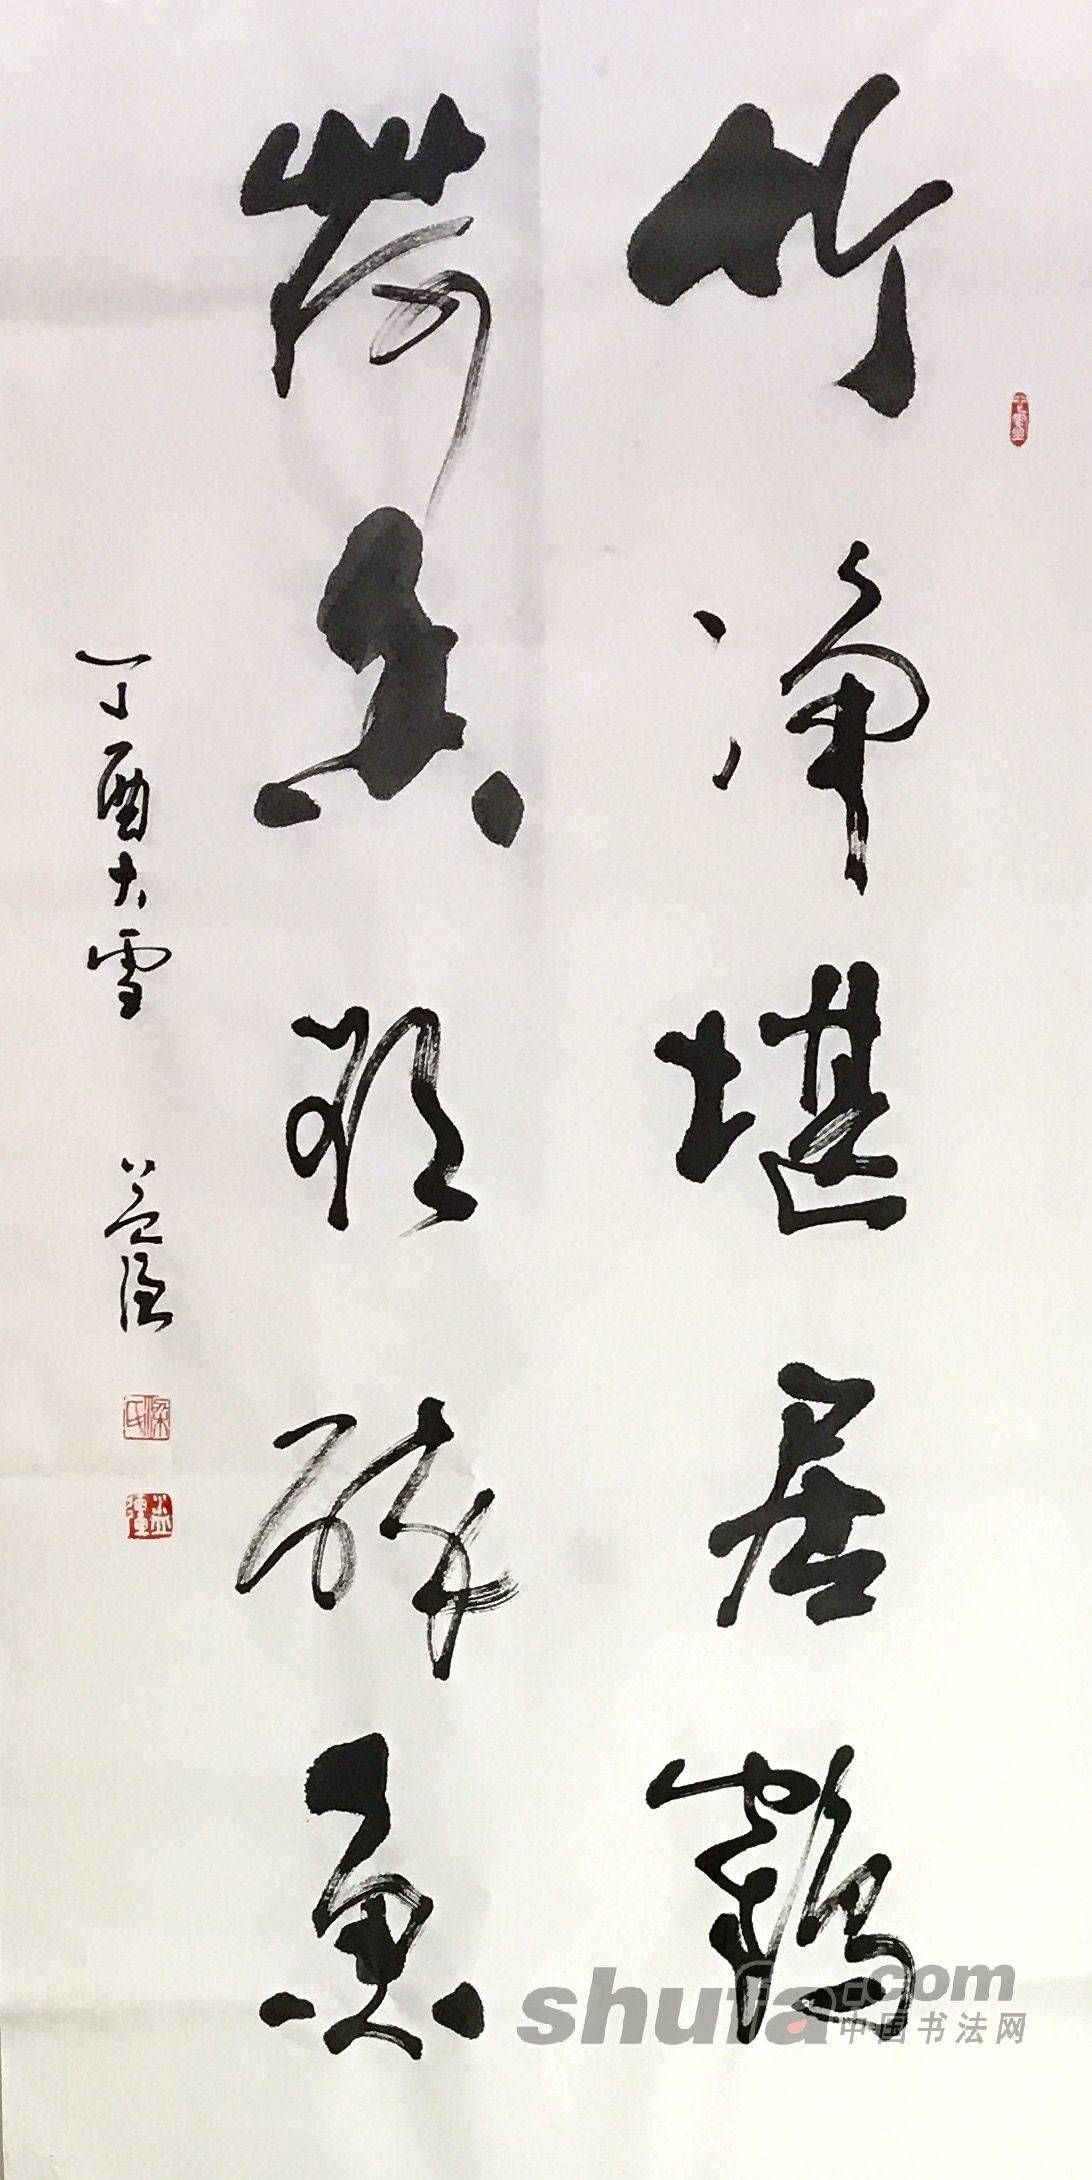 竹净堪居鶴
荷香欲醉魚
丁酉大雪 益
梁氏
shufa.com
中国书法网